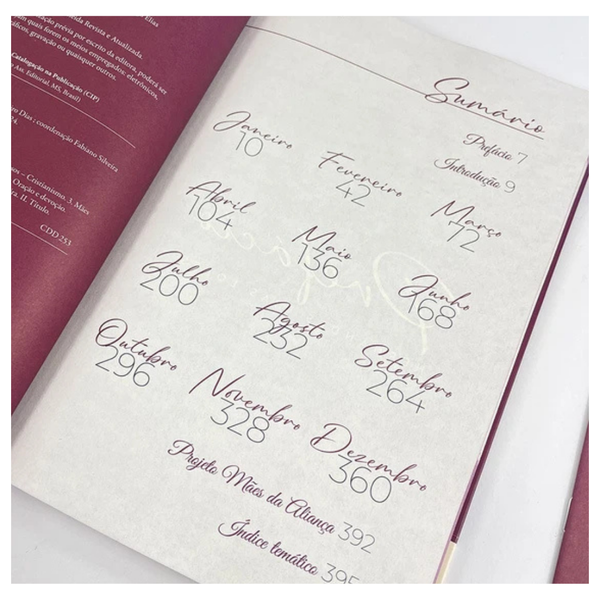 nda Revista e Atualizada.
cação prévia por escrito da editora, poderá ser
quais forem os meios empregados: eletrônicos,
áficos, gravação ou quaisquer outros.
Catalogação na Publicação (CIP)
Ass. Editorial, MS, Brasil)
Dias ; coordenação Fabiano Silveira
Cristianismo. 3. Mães
Oração e devoção.
II. Título.
CDD 253
Sumário
Prefácio 7
Introdução 9
Janeiro
10
Fevereiro
42
Março
72
Abril
104
Maio
136
Junho
168
Julho
200
Agosto
232
Setembro
264
Outubro
296
Novembro
328
Dezembro
360
Projeto Mães da Aliança 392
Índice temático 395